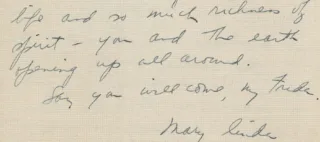 life and so much richness of
spirit – you and the earth
opening up all around.
Say you will come, my Frieda.
Mary Linda